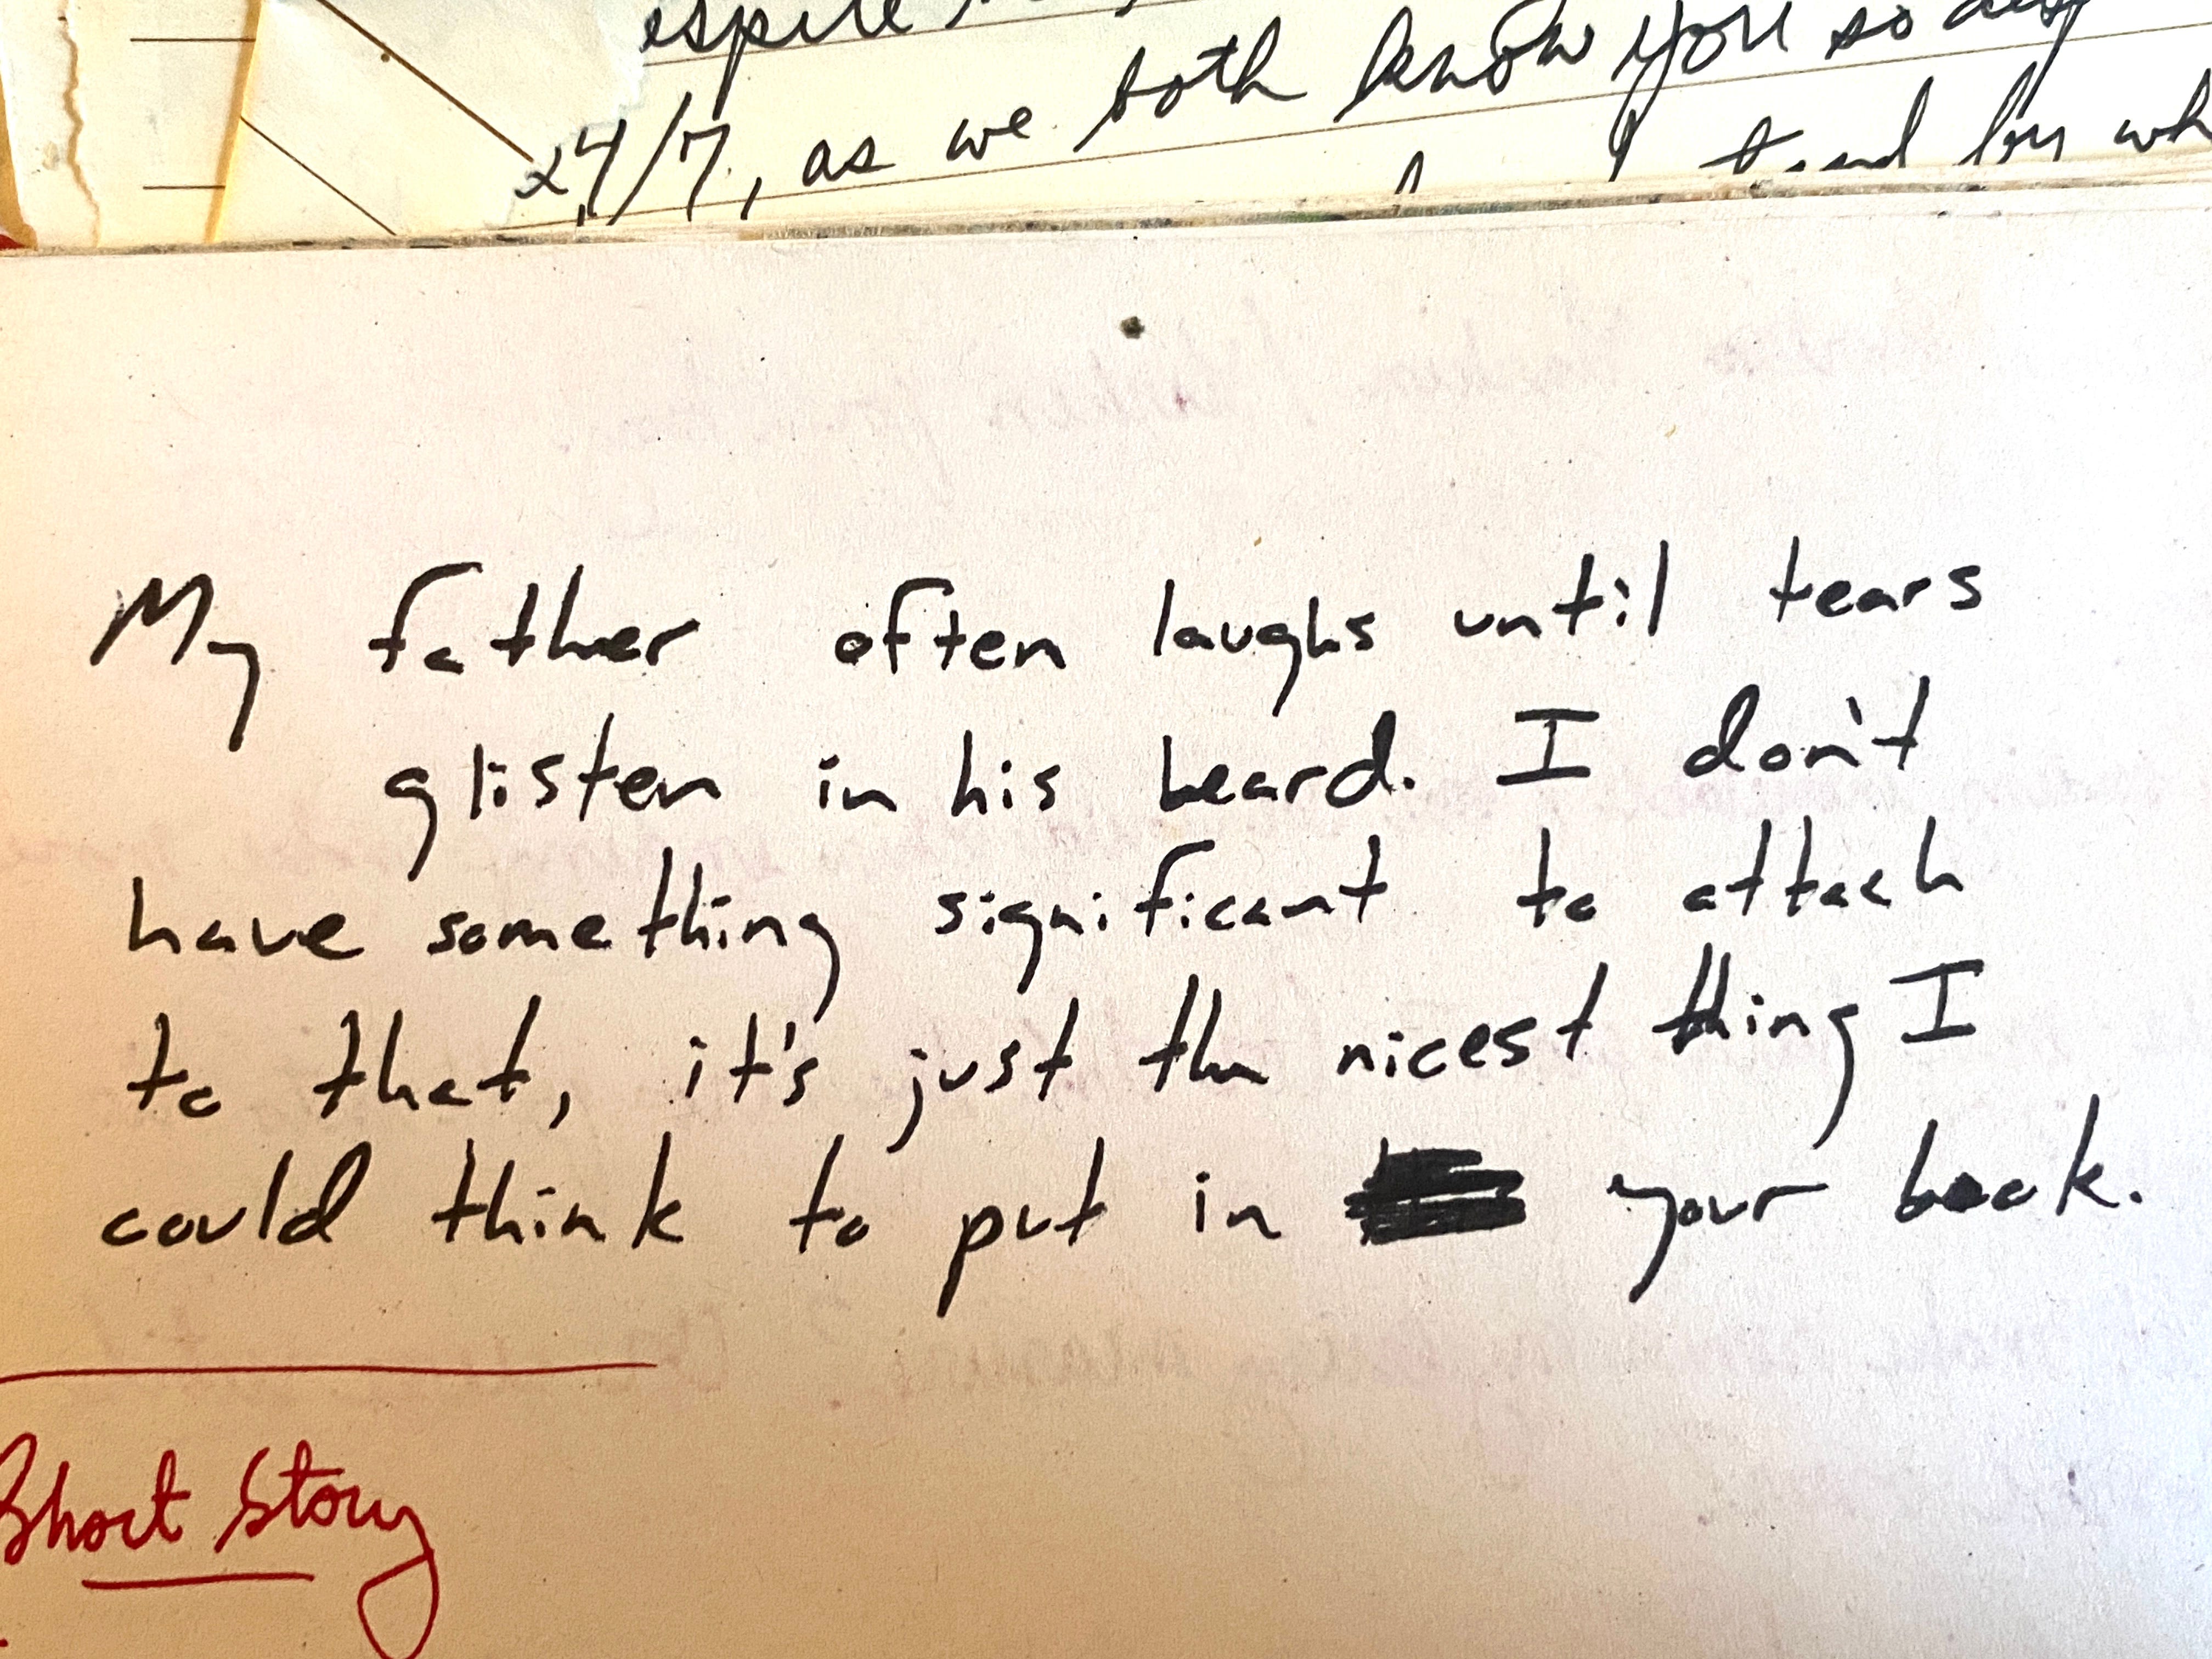 24/7, as we both know you so
My father often laughs until tears
glisten in his beard. I don't
have something significant to attach
to that, it's just the nicest thing I
could think to put in your book.
Short Story